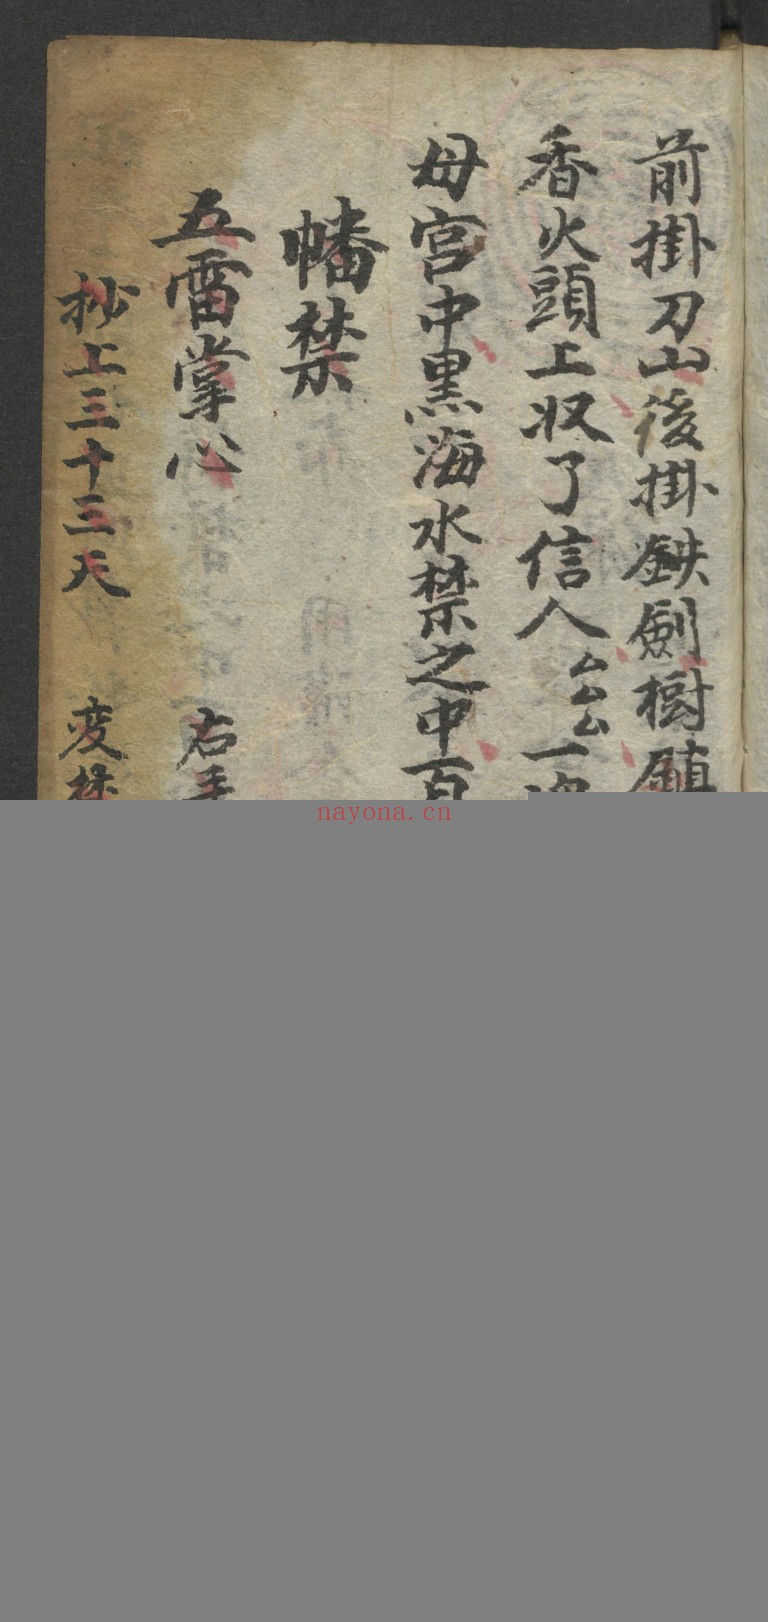 前掛刀山後掛鉄劍樹鎮
香火頭上収了信人厶厶厶一
毋宮中黒海水禁之中百
幡禁
五雷掌心 右手
抄上三十三天 变禁
nayona.cn